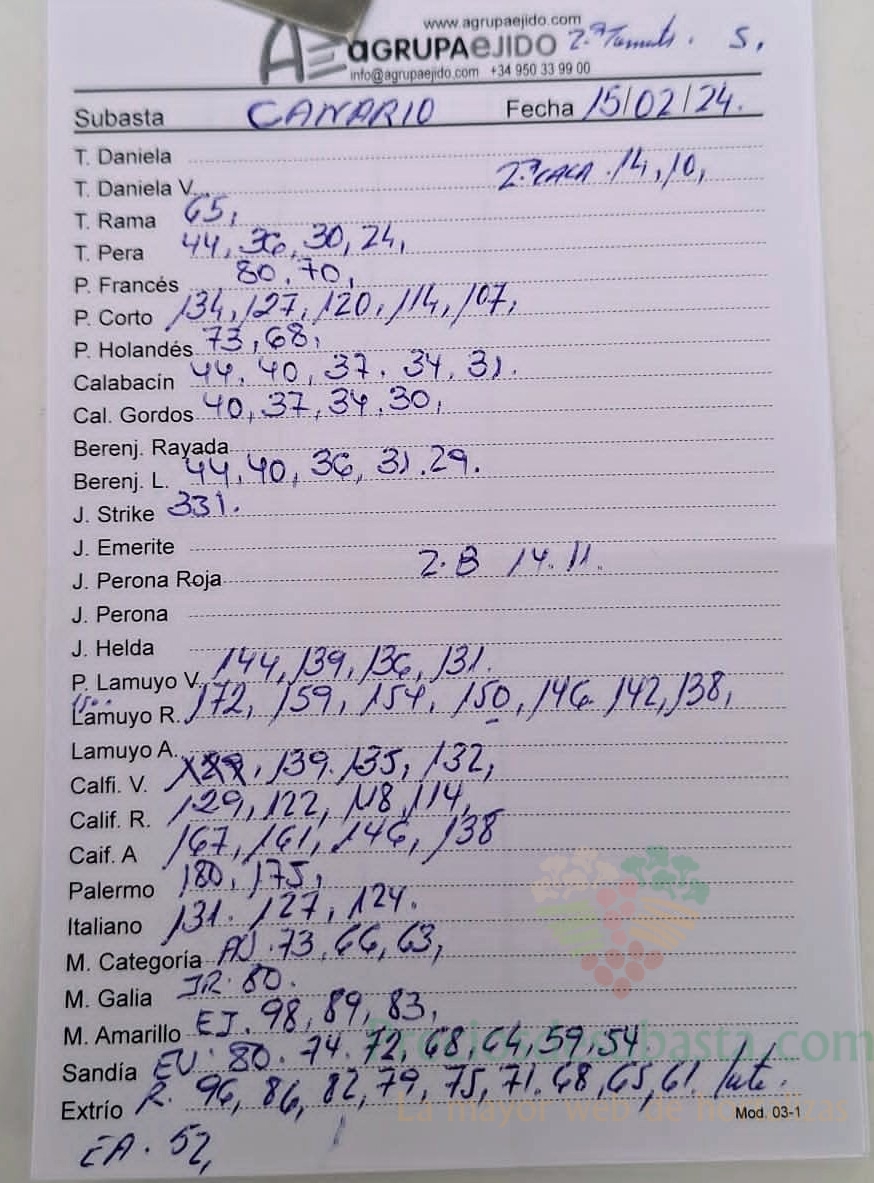 www.agrupaejido.com
AGRUPAEJIDO 2.ª Tamato. S.
info@agrupaejido.com +34 950 33 99 00
Subasta CANARIO Fecha 15/02/24.
T. Daniela
T. Daniela V. 2.ª CACA. 14, 10,
T. Rama 65,
T. Pera 44, 36, 30, 24,
P. Francés 80, 70,
P. Corto 134, 127, 120, 114, 107,
P. Holandés 73, 68,
Calabacín 44, 40, 37, 34, 31.
Cal. Gordos 40, 37, 34, 30,
Berenj. Rayada
Berenj. L. 44, 40, 36, 31, 29.
J. Strike 331.
J. Emerite
J. Perona Roja 2.B 14. 11.
J. Perona
J. Helda
P. Lamuyo V. 144, 139, 136, 131.
Lamuyo R. 172, 159, 154, 150, 146 142, 138,
Lamuyo A.
Calfi. V. 139. 135, 132,
Calif. R. 129, 122, 118, 114,
Caif. A 167, 161, 146, 138
Palermo 180, 175,
Italiano 131. 127, 124.
M. Categoría 73, 66, 63,
M. Galia IR. 80.
M. Amarillo EJ. 98, 89, 83,
Sandía EU. 80. 74. 72, 68, 64, 59, 54
Extrío R. 96, 86, 82, 79, 75, 71. 68, 65, 61
Mod. 03-1
EA. 52,
Preciosdesubasta.com
La mayor web de hortalizas